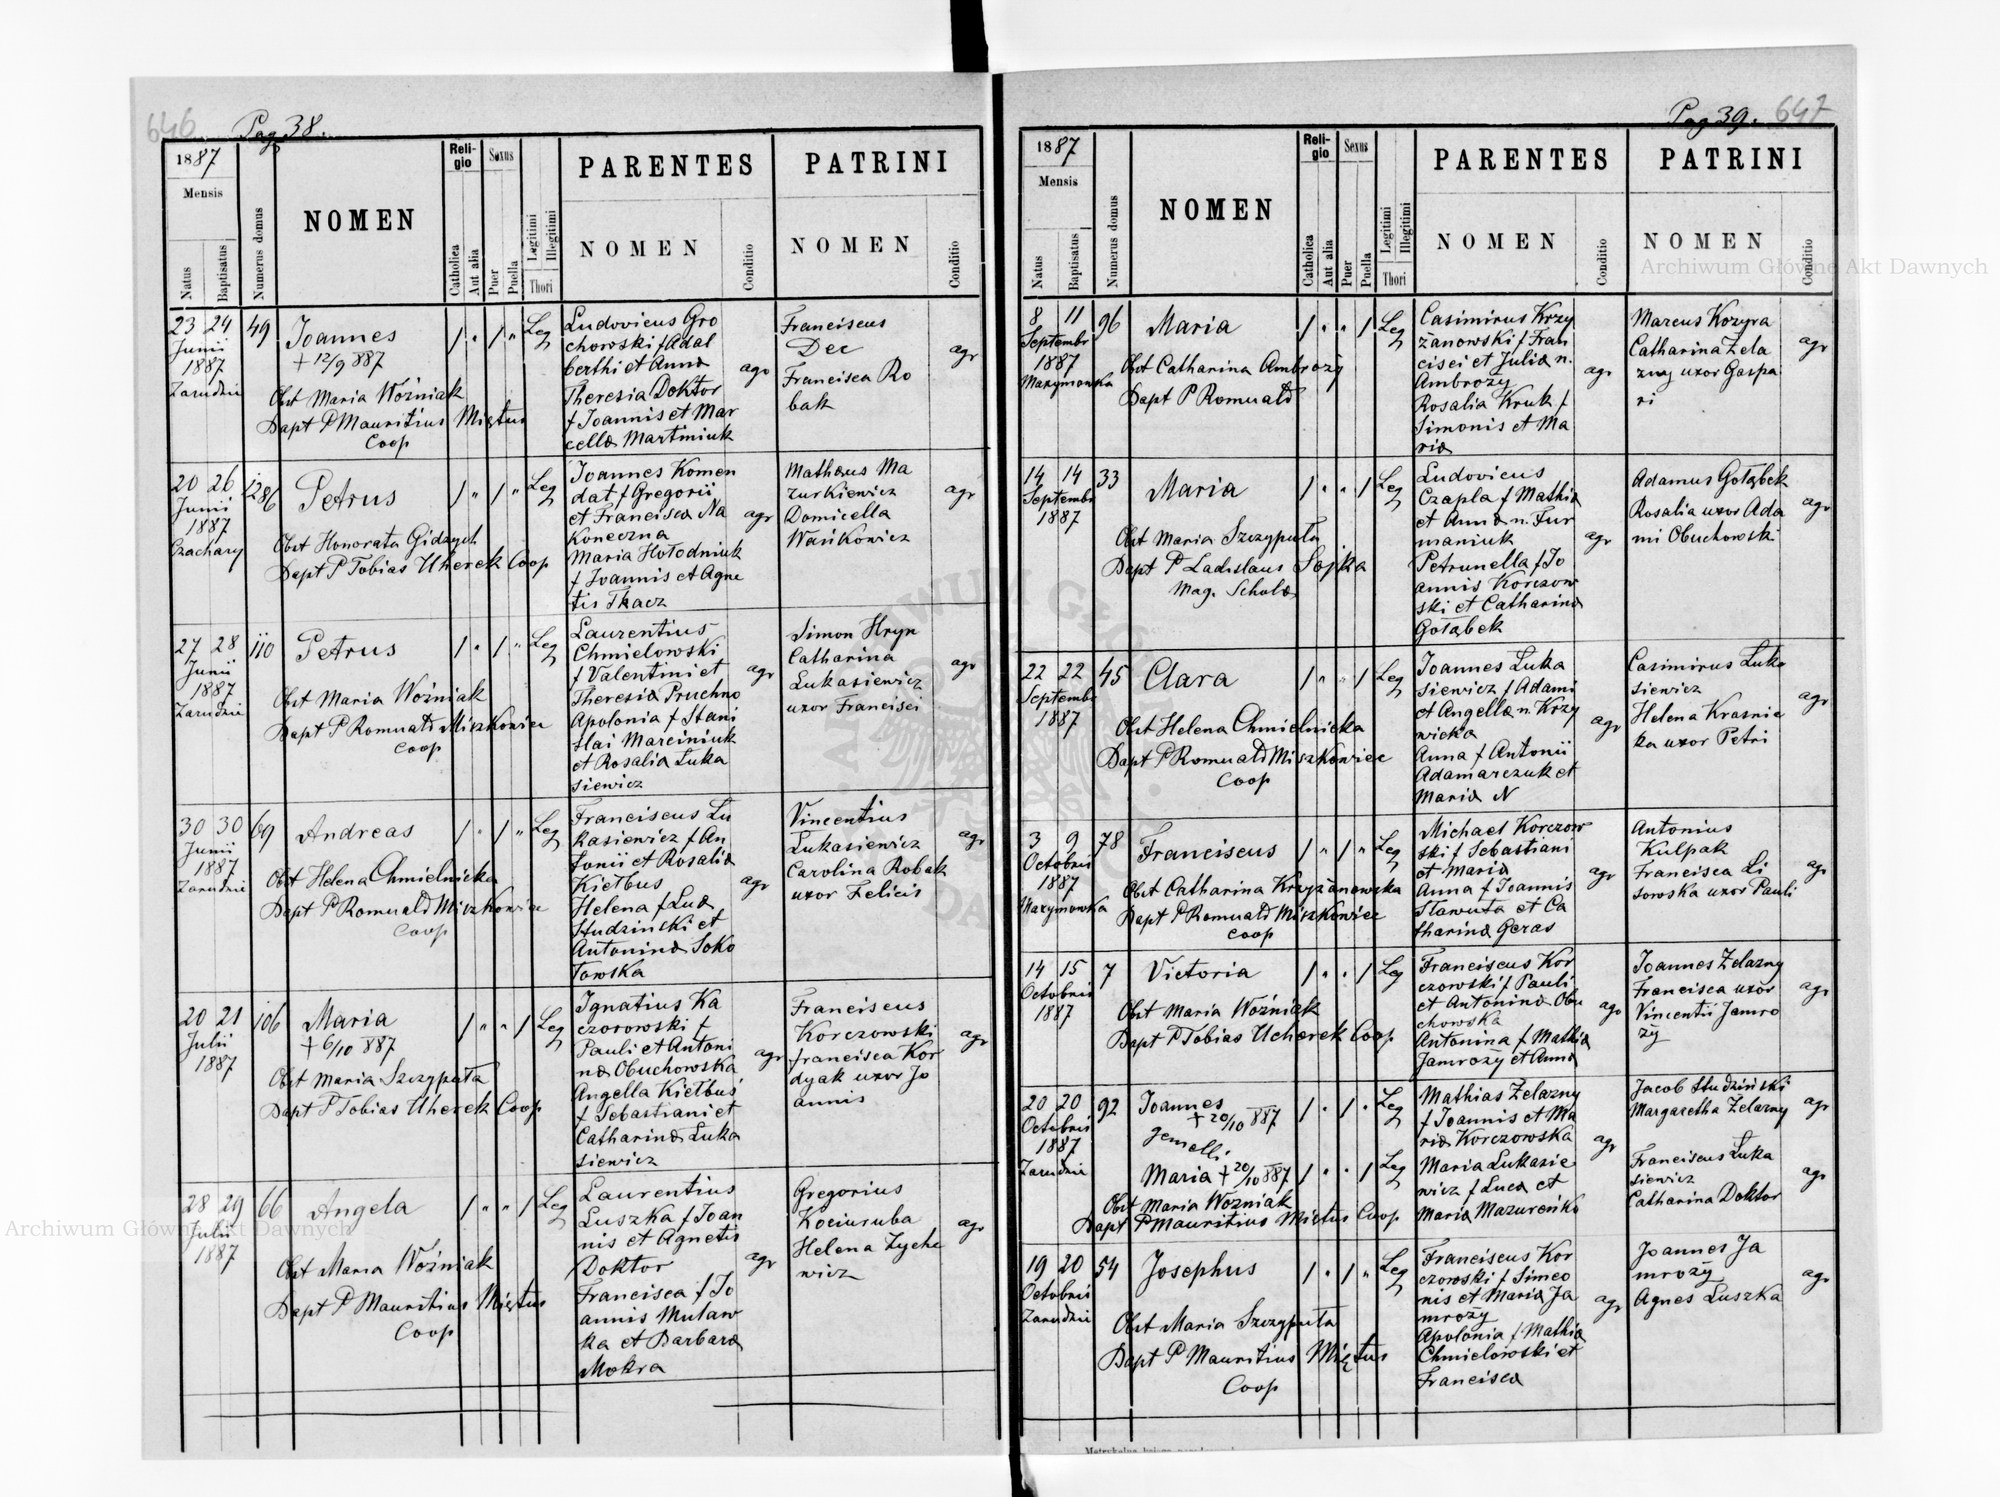 646
Pag 38.
1887
Mensis
Natus
Baptisatus
Numerus domus
NOMEN
Reli-
gio
Catholica
Aut alia
Sexus
Puer
Puella
Legitimi
Illegitimi
Thori
PARENTES
NOMEN
Conditio
PATRINI
NOMEN
Conditio
23 24
Junii
1887
Zarudzie
49
Joannes
+ 12/9 887
Obst Maria Woźniak
Bapt P Mauritius Miętus
Coop
Leg
Ludovicus Gro
chowski f Adal
berthi et Anna
Theresia Doktor
f Joannis et Mar
cella Martiniuk
agr
Franciscus
Dec
Francisca Ro
bak
agr
20 26
Junii
1887
Czachary
1286
Petrus
Obst Honorata Gidzych
Bapt P Tobias Uherek Coop
Leg
Joannes Komen
dat f Gregorii
et Francisca Na
Koneczna
Maria Hołodniuk
f Joannis et Agne
tis Tkacz
agr
Mathæus Ma
zurkiewicz
Domicella
Wańkowicz
agr
27 28
Junii
1887
Zarudzie
110
Petrus
Obst Maria Woźniak
Bapt P Romuald Miszkowicz
Coop
Leg
Laurentius
Chmielowski
f Valentini et
Theresia Pruchno
Apolonia f Stani
slai Marciniuk
et Rosalia Luka
siewicz
agr
Simon Hryn
Catharina
Lukasiewicz
uxor Francisci
agr
30 30
Junii
1887
Zarudzie
69
Andreas
Obst Helena Chmielnicka
Bapt P Romuald Miszkowicz
Coop
Leg
Franciscus Lu
kasiewicz f An
tonii et Rosalia
Kiełbus
Helena f Luca
Studzinski et
Antonina Soko
łowska
agr
Vincentius
Lukasiewicz
Carolina Robak
uxor Felicis
agr
20 21
Julii
1887
106
Maria
+ 6/10 887
Obst Maria Szczyputa
Bapt P Tobias Uherek Coop
Leg
Ignatius Ka
czorowski f
Pauli et Antoni
na Obuchowska
Angella Kiełbus
f Sebastiani et
Catharina Luka
siewicz
agr
Franciscus
Korczowski
francisca Kor
dyak uxor Jo
annis
agr
28 29
Julii
1887
66
Angela
Obst Maria Woźniak
Bapt P Mauritius Miętus
Coop
Leg
Laurentius
Luszka f Joan
nis et Agnetis
Doktor
Francisca f Jo
annis Mulaw
ka et Barbara
Mokra
agr
Gregorius
Kociuruba
Helena Zyche
wicz
agr
Pag 39. 647
1887
Mensis
Natus
Baptisatus
Numerus domus
NOMEN
Reli-
gio
Catholica
Aut alia
Sexus
Puer
Puella
Legitimi
Illegitimi
Thori
PARENTES
NOMEN
Conditio
PATRINI
NOMEN
Conditio
8 11
Septembr
1887
Mazymowka
96
Maria
Obst Catharina Ambroży
Bapt P Romuald
Leg
Casimirus Krzy
żanowski f Fran
cisci et Julia n.
Ambroży
Rosalia Kruk f
Simonis et Ma
ria
agr
Marcus Kozyra
Catharina Zela
zny uxor Gaspa
ri
agr
14 14
Septembr
1887
33
Maria
Obst Maria Szczyputa
Bapt P Ladislaus Sojka
Mag. Schola
Leg
Ludovicus
Czapla f Mathia
et Anna n. Fur
maniuk
Petrunella f Jo
annis Korczow
ski et Catharina
Gołąbek
agr
Adamus Gołąbek
Rosalia uxor Ada
mi Obuchowski
agr
22 22
Septembr
1887
45
Clara
Obst Helena Chmielnicka
Bapt P Romuald Miszkowicz
Coop
Leg
Joannes Luka
siewicz f Adami
et Angella n. Krzy
wicka
Anna f Antonii
Adamarczuk et
Maria N
agr
Casimirus Luka
siewicz
Helena Krasnic
ka uxor Petri
agr
3 9
Octobris
1887
Mazymowka
78
Franciscus
Obst Catharina Krzyżanowska
Bapt P Romuald Miszkowicz
Coop
Leg
Michael Korczow
ski f Sebastiani
et Maria
Anna f Joannis
Sławuta et Ca
tharina Geras
agr
Antonius
Kulpak
Francisca Li
sowska uxor Pauli
agr
14 15
Octobris
1887
7
Victoria
Obst Maria Woźniak
Bapt P Tobias Ucherek Coop
Leg
Franciscus Kor
czowski f Pauli
et Antonina Obu
chowska
Antonina f Mathia
Jamroży et Anna
agr
Joannes Zelazny
Francisca uxor
Vincentii Jamro
ży
agr
20 20
Octobris
1887
Zarudzie
92
Joannes
+ 20/10 887
gemelli
Maria + 20/10 887
Obst Maria Woźniak
Bapt P Mauritius Miętus Coop
Leg
Leg
Mathias Zelazny
f Joannis et Ma
ria Korczowska
Maria Lukasie
wicz f Luca et
Maria Mazureńko
agr
Jacob Studziński
Margaretha Zelazny
Franciscus Luka
siewicz
Catharina Doktor
agr
agr
19 20
Octobris
Zarudzie
54
Josephus
Obst Maria Szczyputa
Bapt P Mauritius Miętus
Coop
Leg
Franciscus Kor
czowski f Simeo
nis et Maria Ja
mroży
Apolonia f Mathia
Chmielowski et
Francisca
agr
Joannes Ja
mroży
Agnes Luszka
agr
Archiwum Główne Akt Dawnych
Archiwum Główne Akt Dawnych